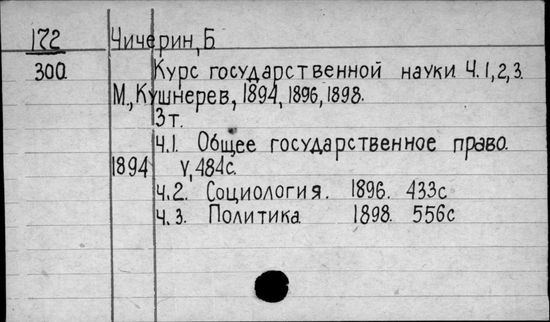 172 Чичерин, Б
300. Курс государственной науки Ч.1,2,3.
М., Кушнерев, 1894, 1896, 1898.
3т.
Ч.1. Общее государственное право.
1894 V, 484с.
Ч.2. Социология. 1896. 433с
Ч.3. Политика 1898. 556с